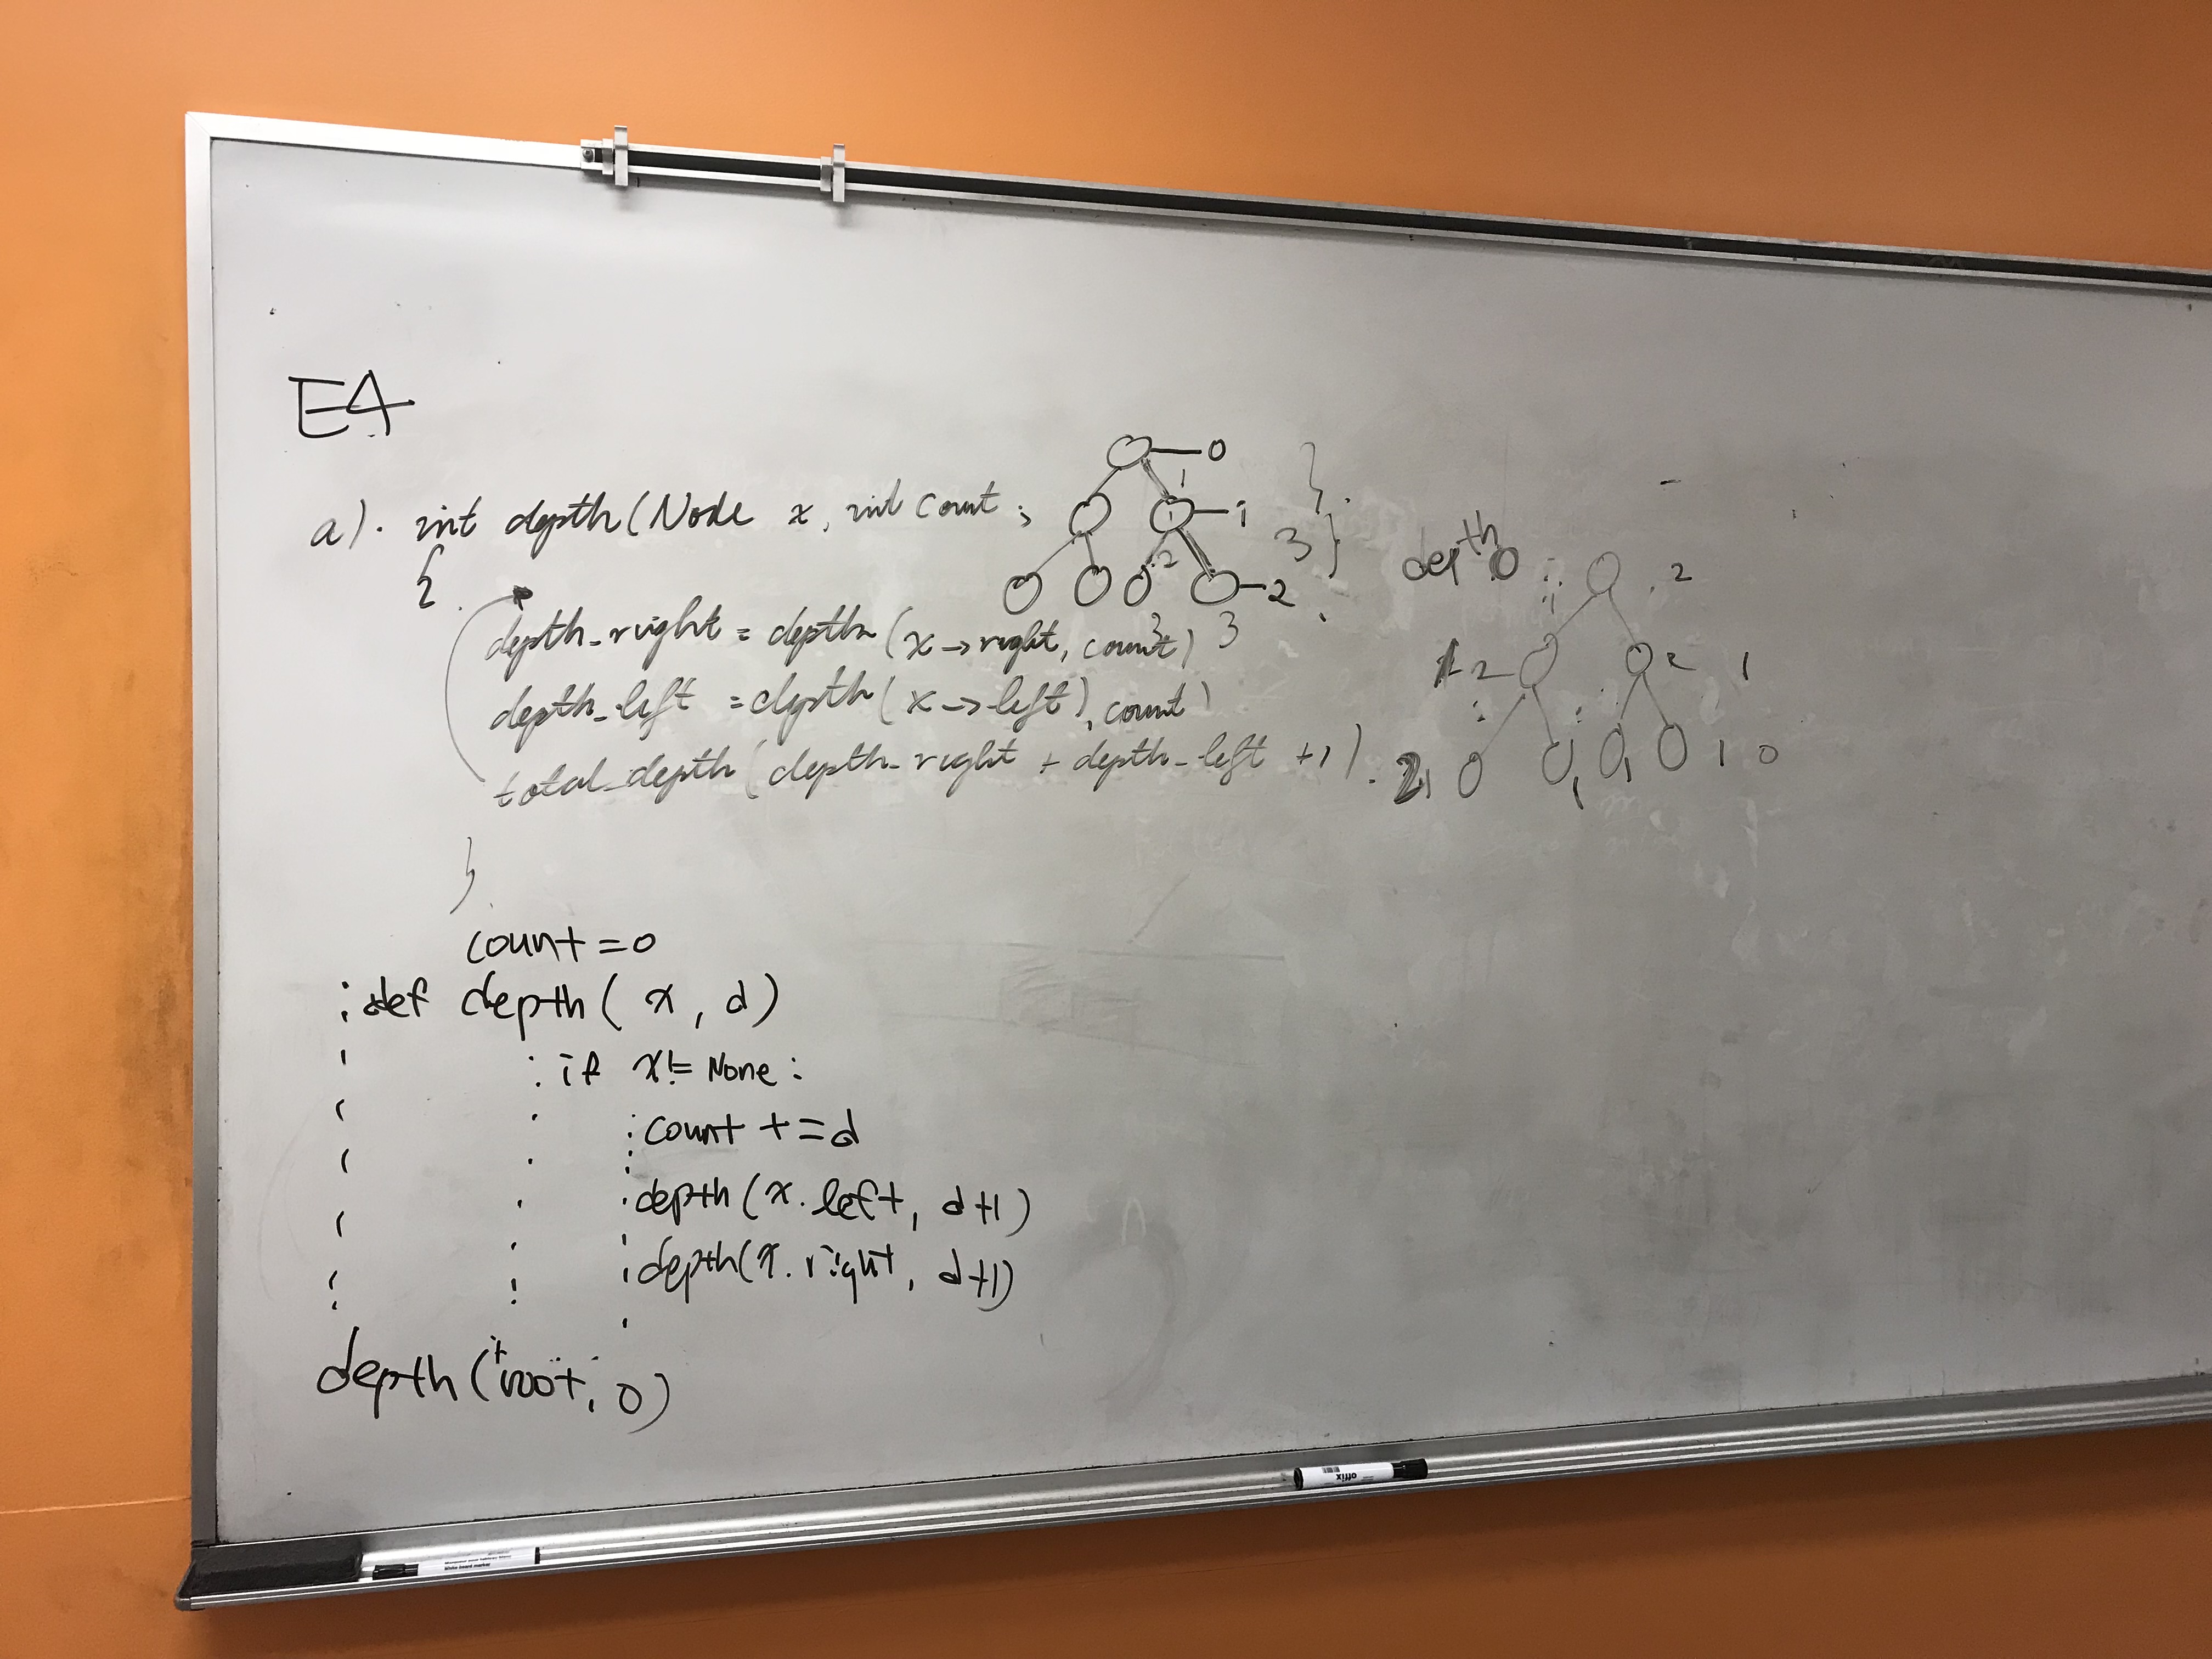 E4
a). int depth(Node x, int count ;
{
depth_right = depth (x→right, count)
depth_left = depth(x→left), count)
total_depth(depth_right + depth_left +1).
}
0
1
1
2
2
3 }
3
3
depth 0
2
1 2
2 1
2 1
1
1
1 0
count = 0
def depth( x , d)
if x != None :
count += d
depth(x.left, d+1)
depth(x.right, d+1)
depth(root, 0)
offix
White board marker